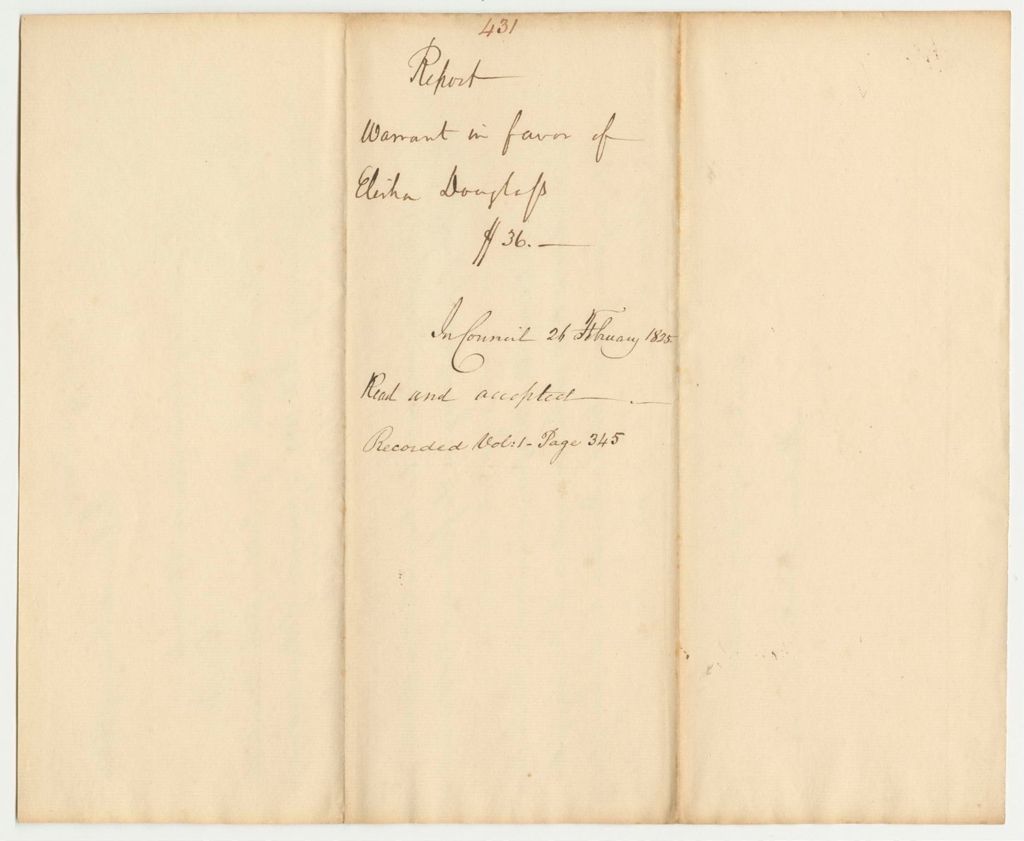 431
Report
Warrant in favor of
Elisha Douglass
$36.—
In Council 26 February 1825
Read and accepted — . —
Recorded Vol: 1 - Page 345